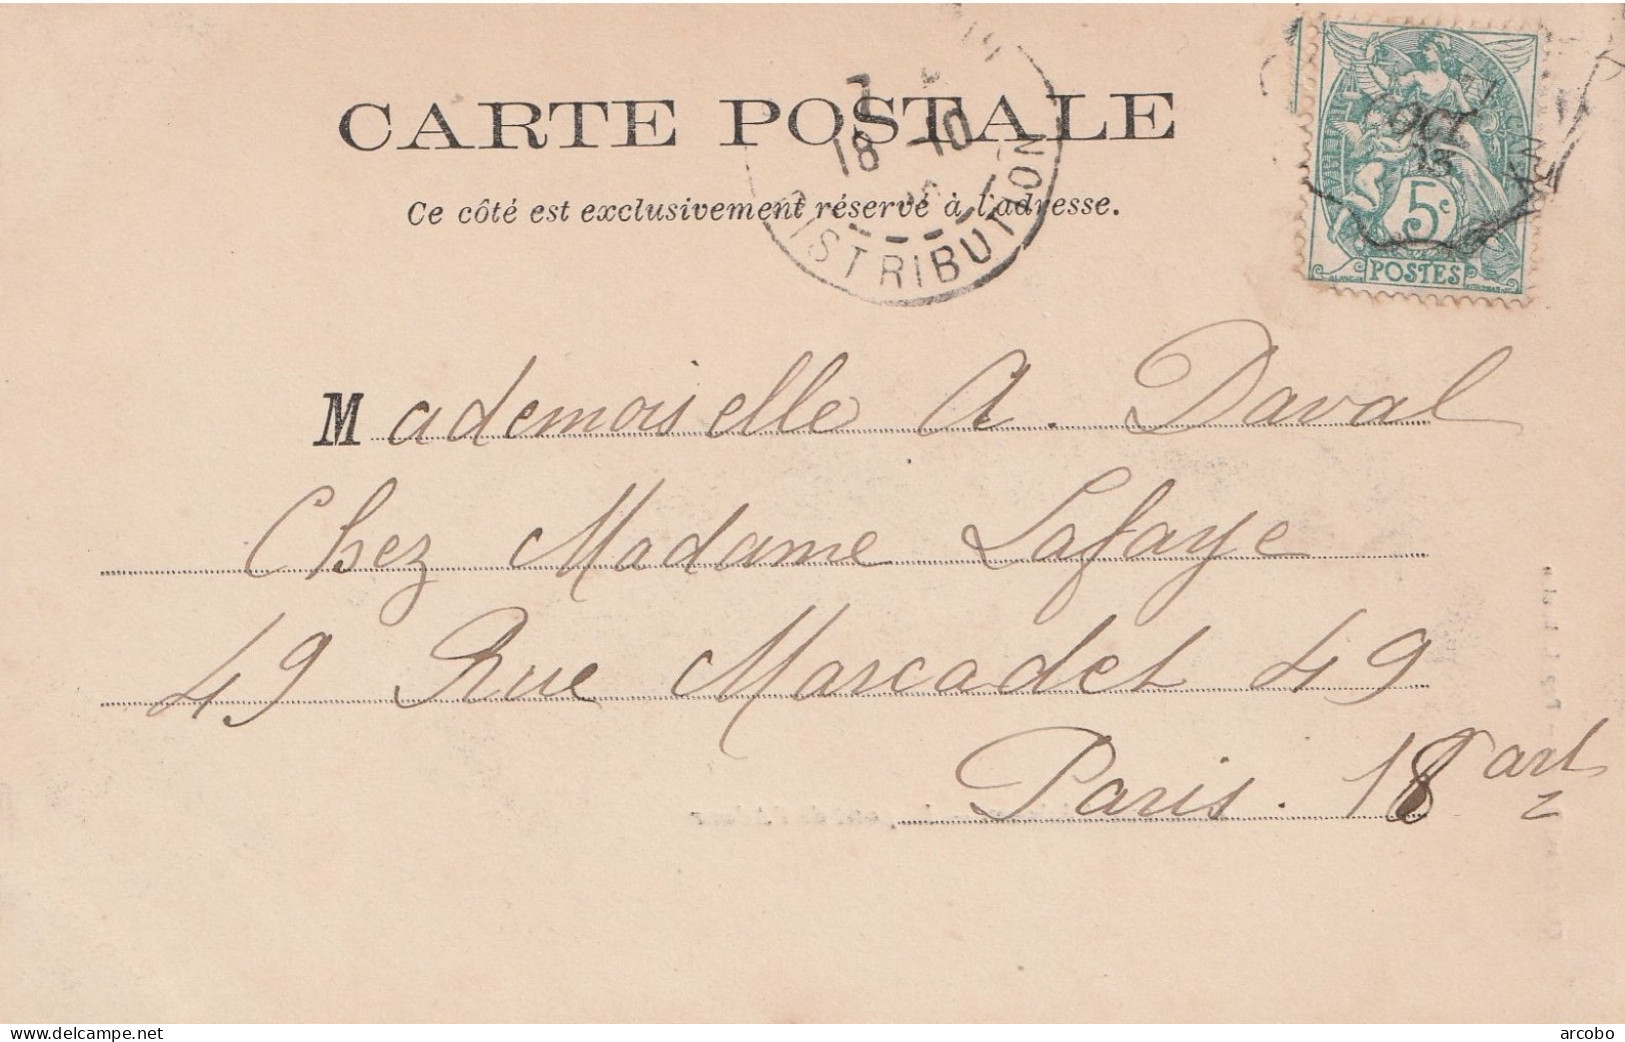 CARTE POSTALE
Ce côté est exclusivement réservé à l'adresse.
18 10
DISTRIBUTION
OCT
13
5c
POSTES
Mademoiselle A. Daval
Chez Madame Lafaye
49 Rue Marcadet 49
Paris. 18e art
www.delcampe.net
arcobo